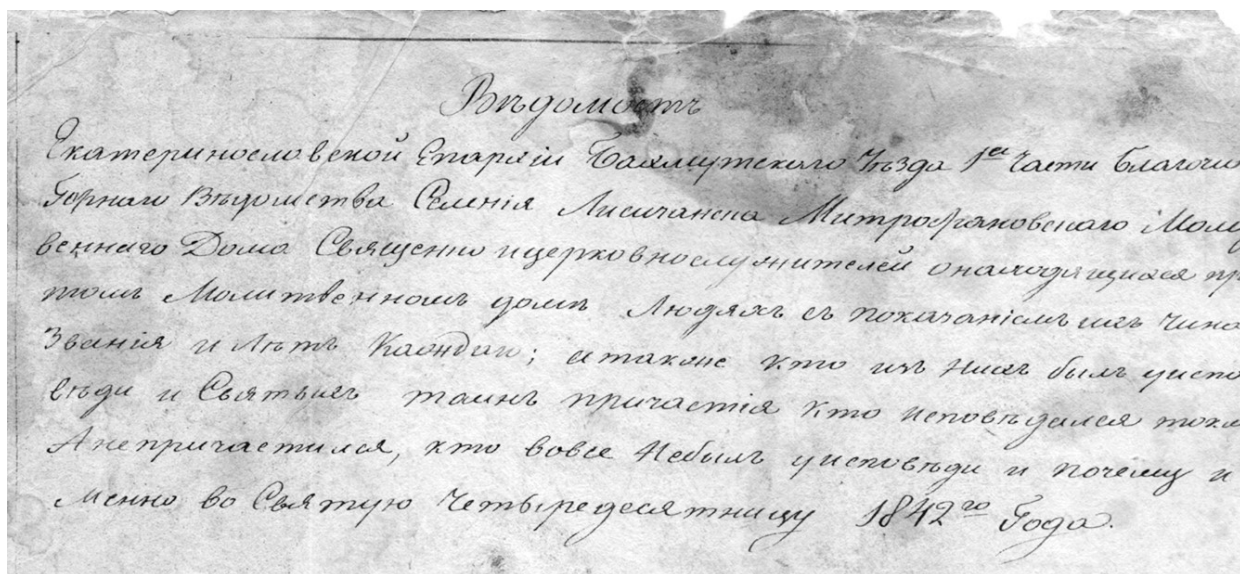 Вѣдомость
Екатеринославской Епархіи Бахмутского Уѣзда 1ой Части Благочи
Горнаго Вѣдомства Селенія Лисичанска Митрофановскаго Молит
веннаго Дома Священно ицерковнослужителей онаходящихся при
томъ Молитвенномъ домѣ Людяхъ съ показаніемъ ихъ Чино
Званія и Лѣтъ Каждаго; атакже кто изъ нихъ былъ уиспо
вѣди и Святыхъ таинъ причастія кто исповѣдался токмо
Анепричастился, кто вовсе Небылъ уисповѣди и почему и
менно во Святую Четыредесятницу 1842го Года.